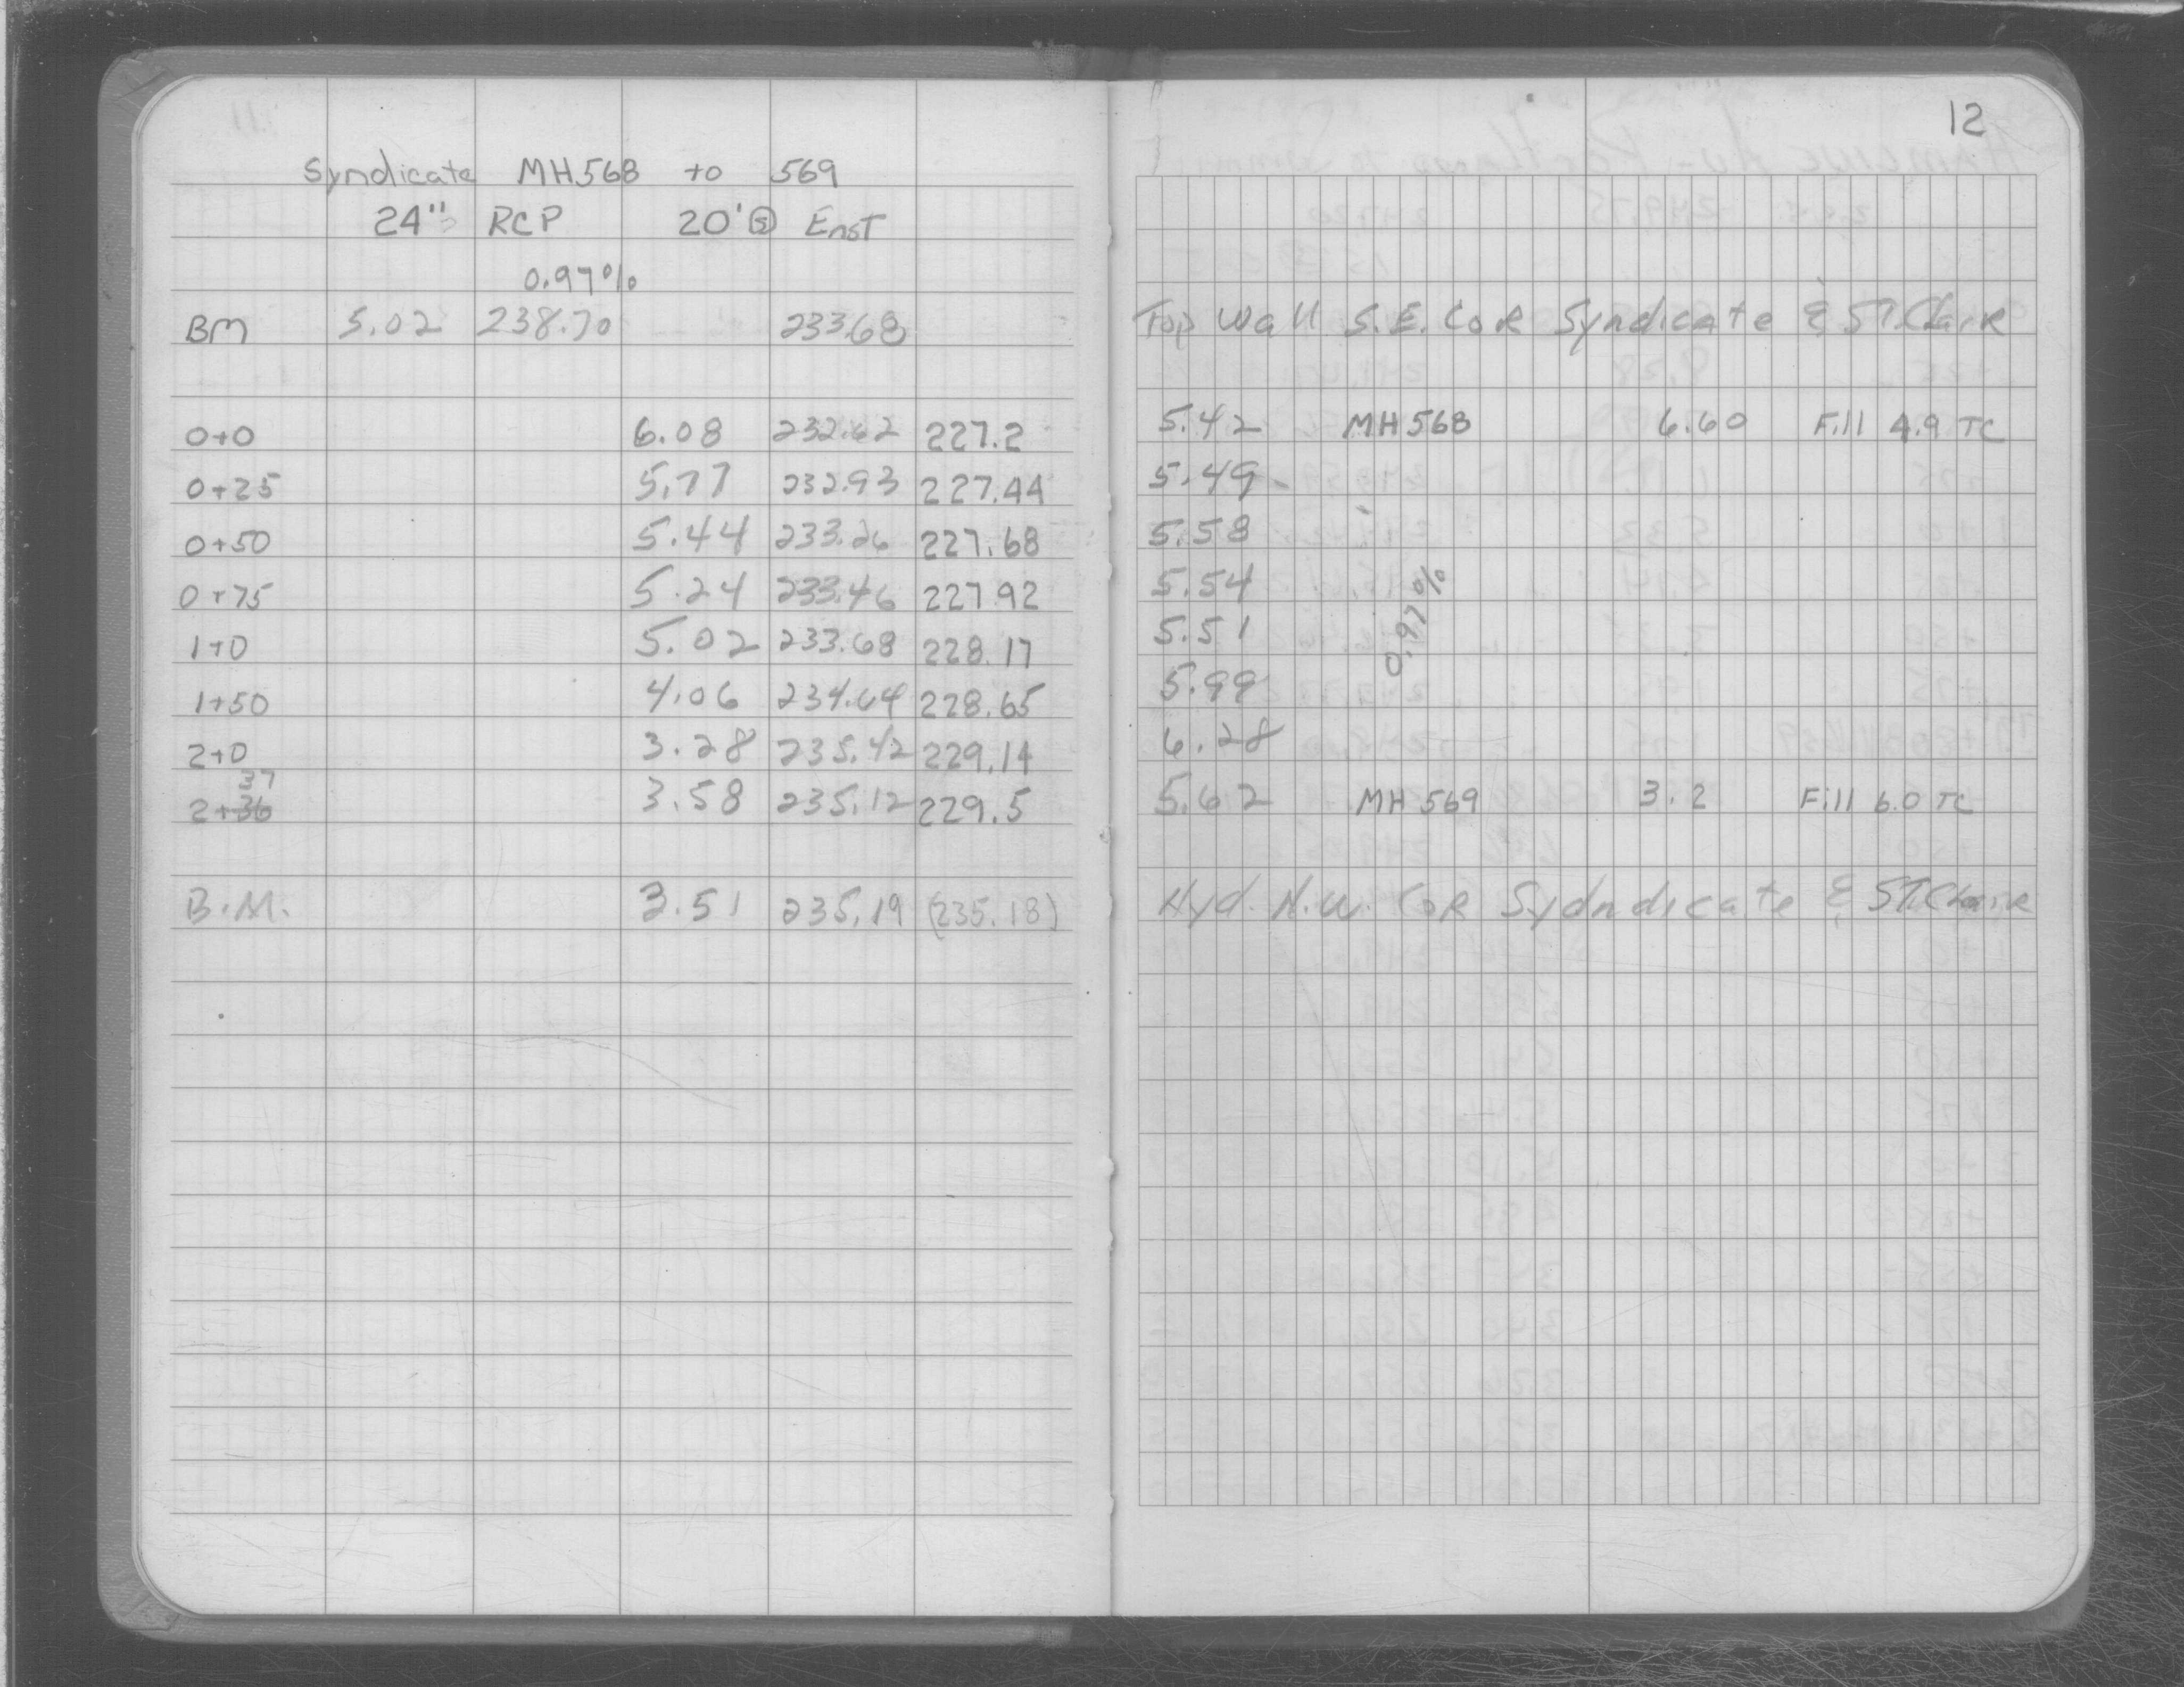 Syndicate MH568 to 569
24" RCP 20' Ⓢ East
0.97%
BM 5.02 238.70 233.68
0+0 6.08 232.62 227.2
0+25 5.77 232.93 227.44
0+50 5.44 233.26 227.68
0+75 5.24 233.46 227.92
1+0 5.02 233.68 228.17
1+50 4.06 234.64 228.65
2+0 3.28 235.42 229.14
37
2+36 3.58 235.12 229.5
B.M. 3.51 235.19 (235.18)
12
Top Wall S.E. CoR Syndicate & ST.ClaiR
5.42 MH568 6.60 Fill 4.9 TC
5.49
5.58
5.54
0.97%
5.51
5.99
6.28
5.62 MH 569 3.2 Fill 6.0 TC
Hyd. N.W. CoR Sydndicate & ST.ClaiR